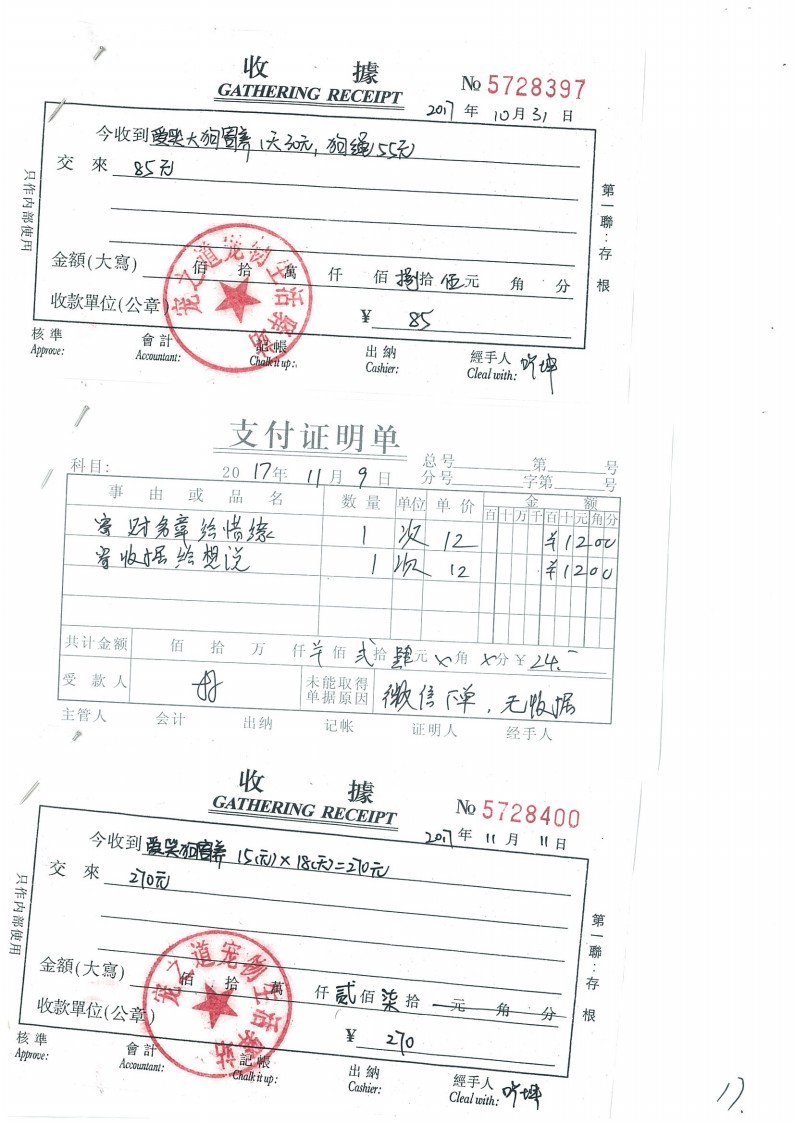 收 據
GATHERING RECEIPT
№ 5728397
2017 年 10 月 31 日
今收到 爱哭大狗寄养 1天30元, 狗绳55元
交來 85元
只作内部使用
第一聯：存根
金額(大寫) 佰 拾 萬 仟 佰 捌拾 伍元 角 分
收款單位(公章) ¥ 85
宠之道宠物生活驿站
核準 會計 記帳 出納 經手人
Approve: Accountant: Chalk it up: Cashier: Cleal with:
支付证明单
科目: 2017年 11月 9日
总号 第 号
分号 字第 号
事由或品名 数量 单位 单价 金额
百十万千百十元角分
寄财务章给惜缘 1 次 12 ¥1200
寄收据给想说 1 次 12 ¥1200
共计金额 佰 拾 万 仟 ¥ 佰 贰 拾 肆 元 × 角 × 分 ¥ 24.-
受款人 未能取得单据原因 微信下单, 无收据
主管人 会计 出纳 记帐 证明人 经手人
收 據
GATHERING RECEIPT
№ 5728400
2017 年 11 月 11 日
今收到 爱哭狗寄养 15(元)×18(天)=270元
交來 270元
只作内部使用
第一聯：存根
金額(大寫) 佰 拾 萬 仟 貳佰 柒拾 元 角 分
收款單位(公章) ¥ 270
宠之道宠物生活驿站
核準 會計 記帳 出納 經手人
Approve: Accountant: Chalk it up: Cashier: Cleal with:
17.